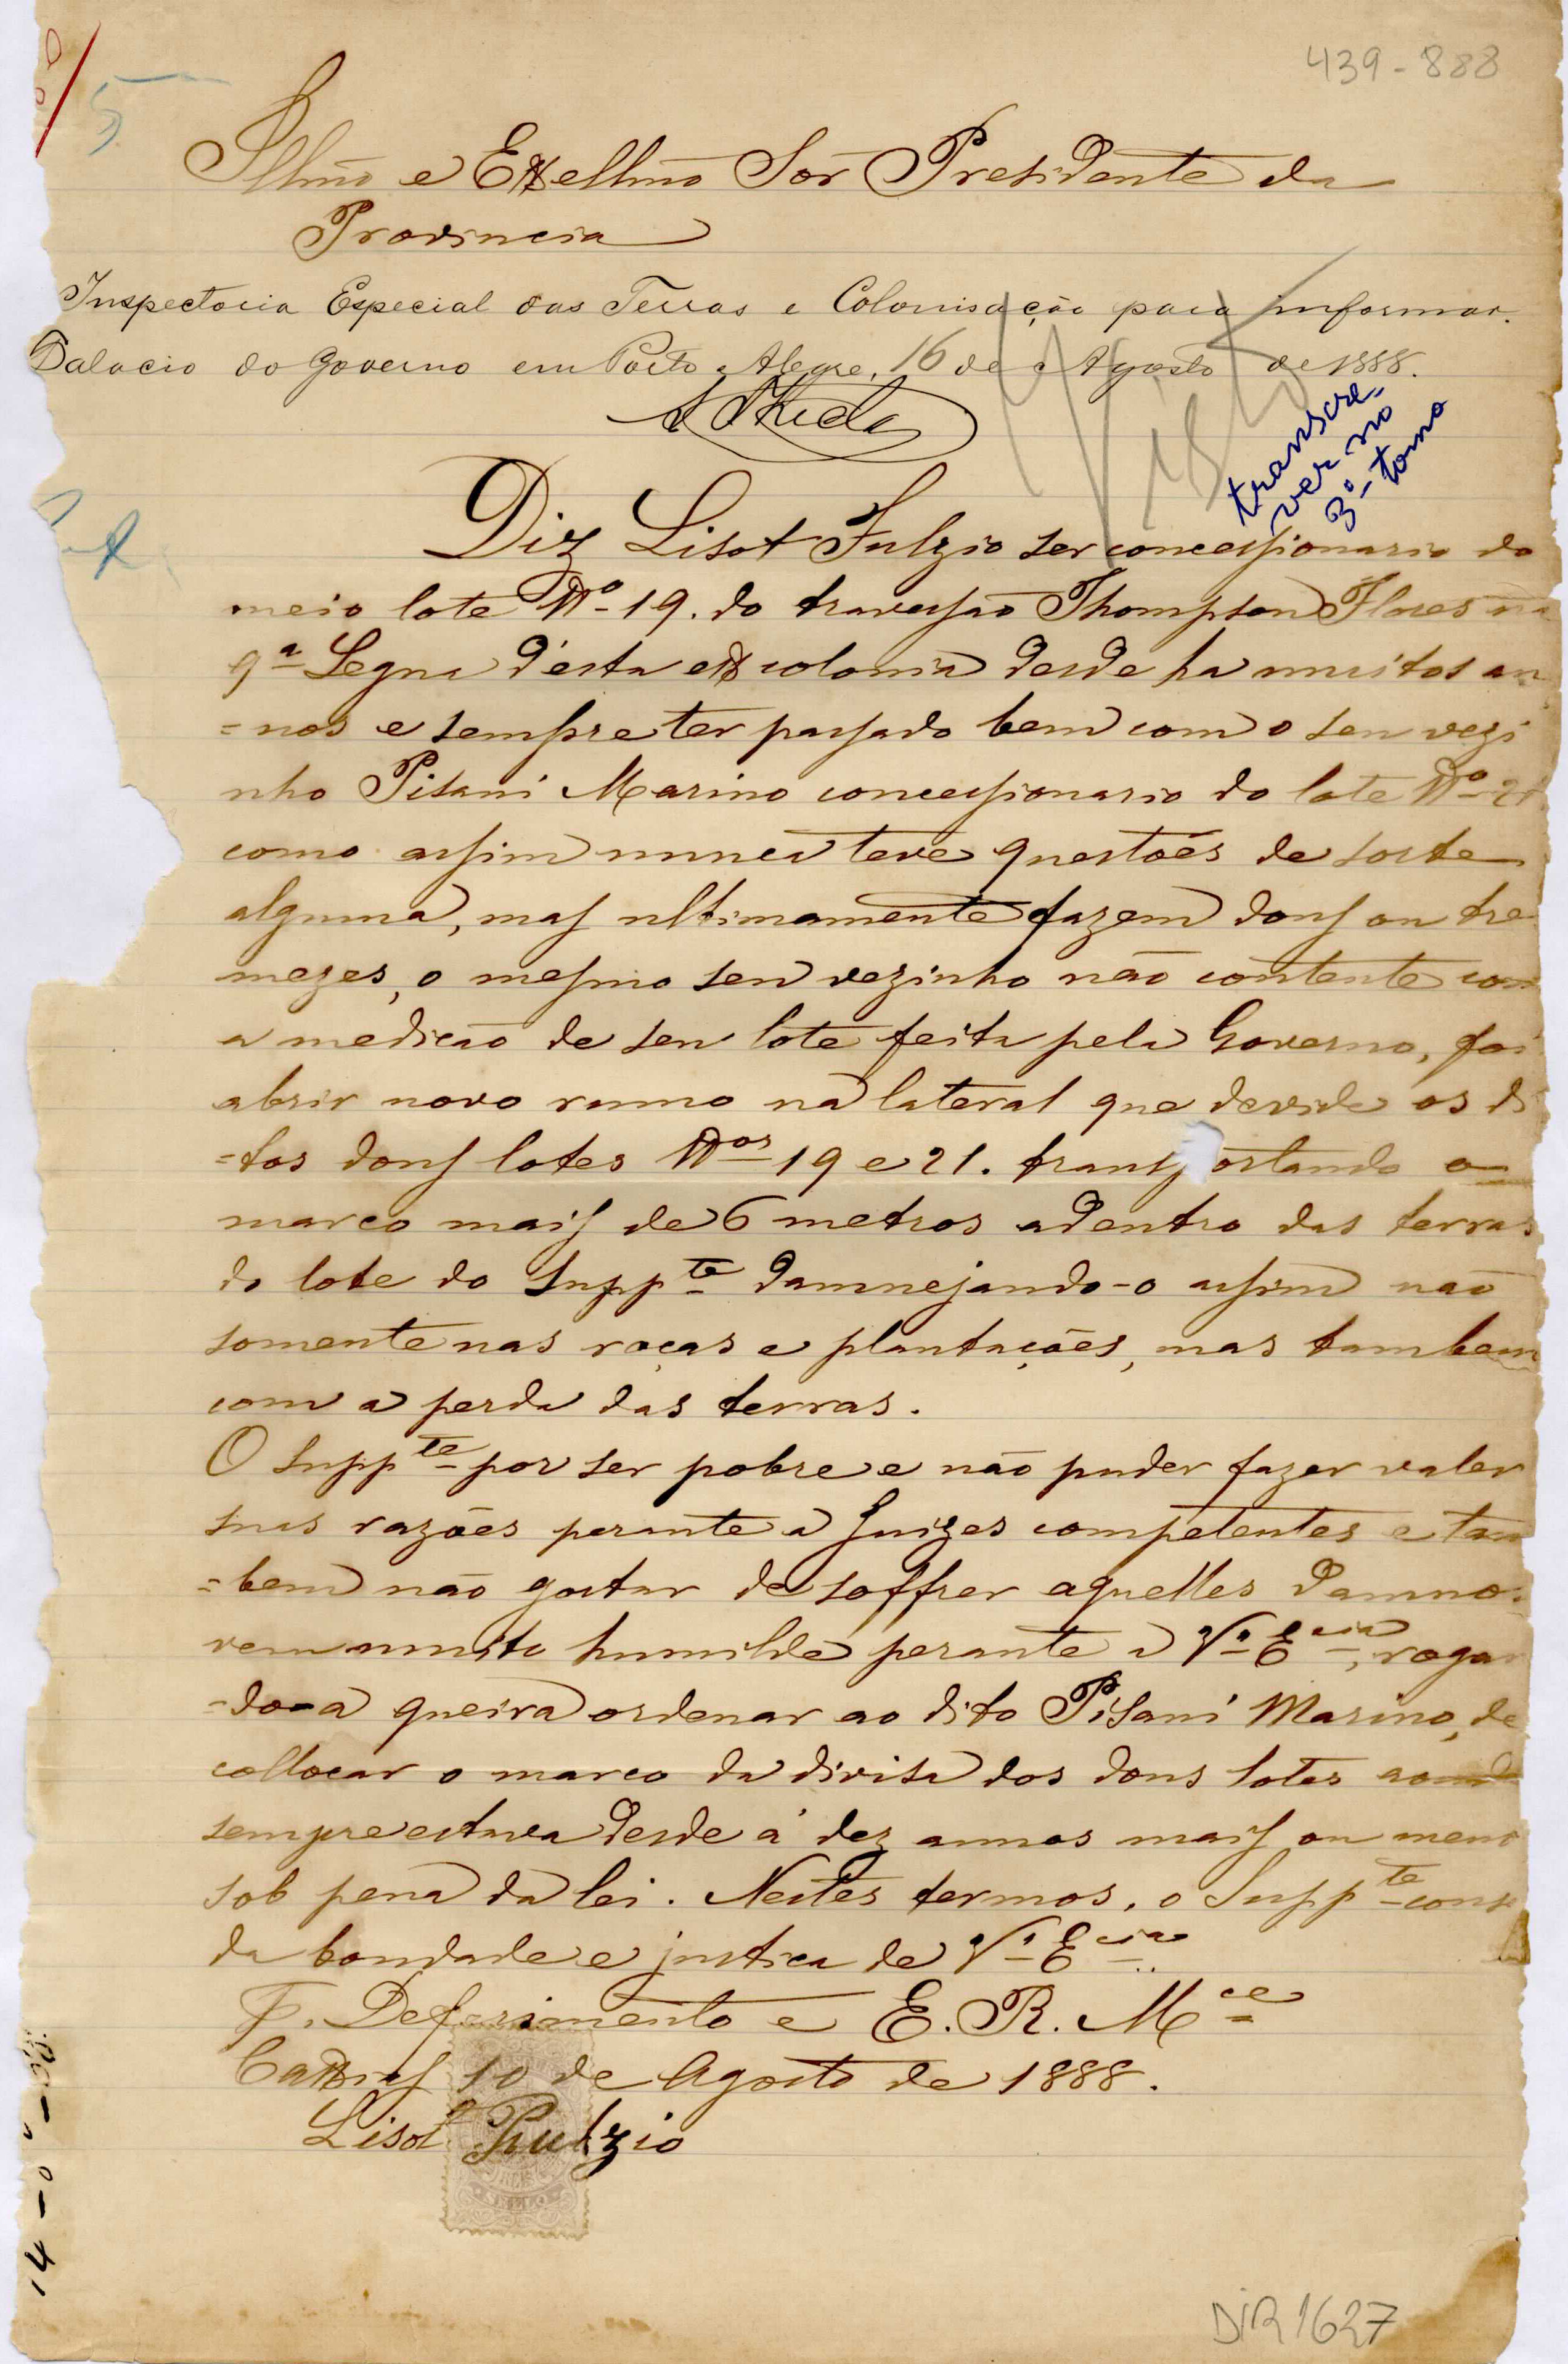 439-888
5
Illmo e Exellmo Sor Presidente da
Provincia
Inspectoria Especial das Terras e Colonisação para informar.
Palacio do Governo em Porto Alegre, 16 de Agosto de 1888.
Visto
transcre-
ver no
3º tomo
Diz Lisot Fulzio ser concessionario do
meio lote Nº 19. do travessão Thompson Flores na
9ª Legua d'esta ex colonia desde ha muitos an
=nos e sempre ter passado bem com o seu vezi
nho Pisani Marino concessionario do lote Nº 21
como assim nunca teve questões de sorte
alguma, mas ultimamente fazem dous ou tre
mezes, o mesmo seu vezinho não contente com
a medicão de seu lote feita pela Governo, foi
abrir novo rumo na lateral que devide os di
=tos dous lotes Nos 19 e 21. transportando o
marco mais de 6 metros adentro das terras
do lote do Suppte damnejando-o assim não
somente nas roças e plantações, mas tambem
com a perda das terras.
O Suppte por ser pobre e não puder fazer valer
suas razões perante a Juizes competentes e tam
=bem não gostar de soffrer aquelles damno
vem muito humilde perante a Vª Ecia, rogan
=do-a queira ordenar ao dito Pisani Marino, de
collocar o marco da divisa dos dous lotes aonde
sempre estava desde á dez annos mais ou meno
sob pena da lei. Nestes termos, o Suppte
da bondade e justica de Vª Ecia
P. Deferimento e E. R. Mce
Caxias 10 de Agosto de 1888.
Lisot Fulzio
DIR 1627